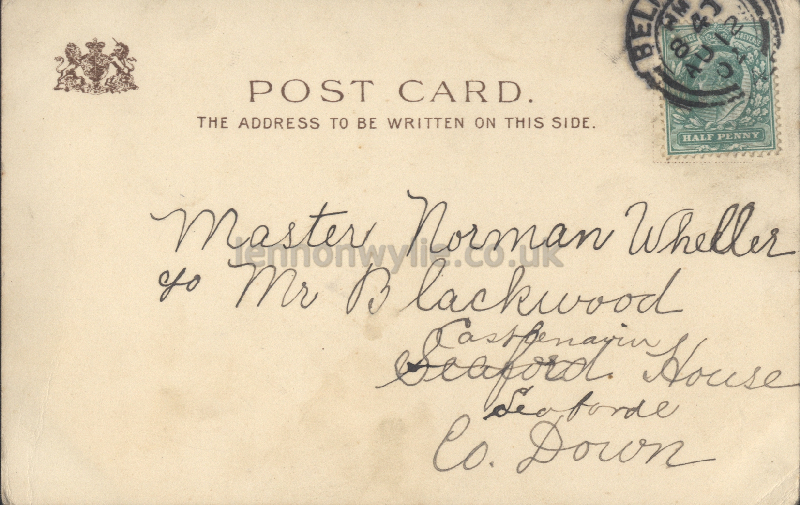 POST CARD.
THE ADDRESS TO BE WRITTEN ON THIS SIDE.
HALF PENNY
Master Norman Wheller
lennonwylie.co.uk
c/o Mr Blackwood
Castlenavin
Seaford. House
Seaforde
Co. Down